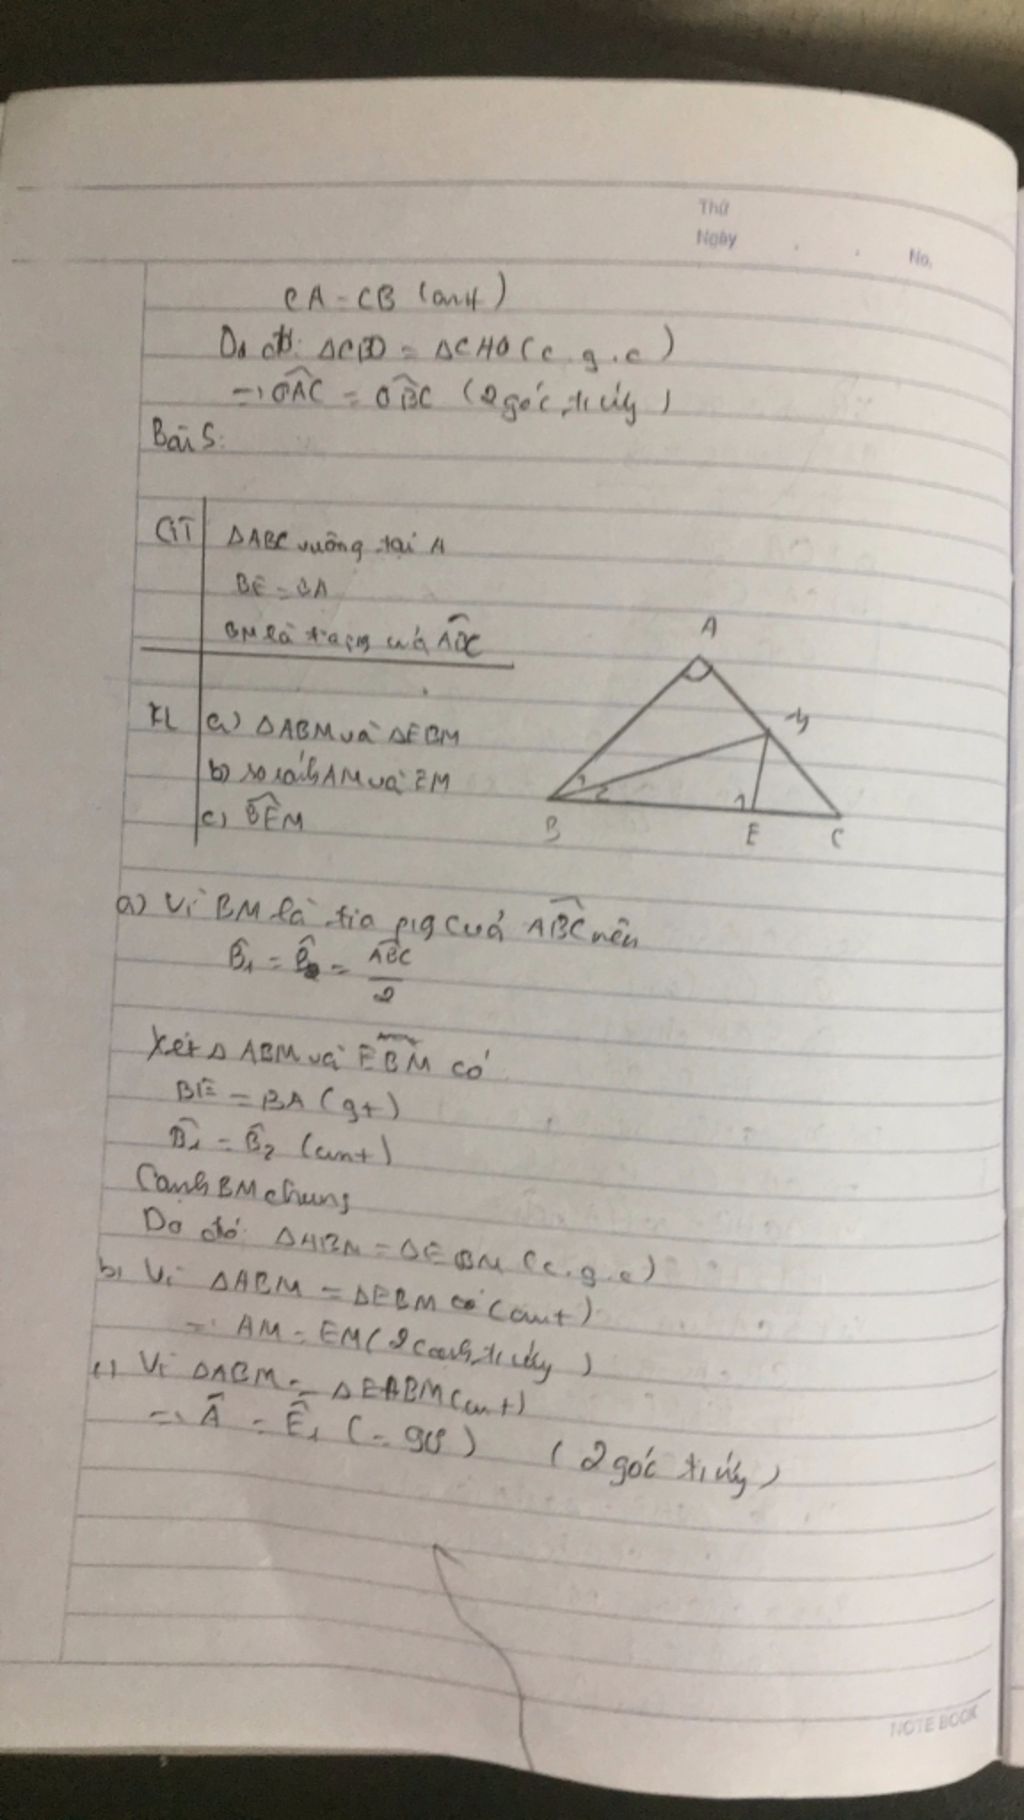 Thứ
Ngày
No.
CA = CB (cmt)
Do đó: ΔCBO = ΔCAO (c.g.c)
=> OAC = OBC (2 góc t. ứng)
Bài 5:
GT ΔABC vuông tại A
BE = BA
BM là tia pg của ABC
KL a) ΔABM và ΔEBM
b) so sánh AM và EM
c) BEM
A
M
1
2
1
B
E
C
a) Vì BM là tia pg của ABC nên
B1 = B2 = ABC/2
Xét Δ ABM và EBM có
BE = BA (gt)
B1 = B2 (cmt)
Cạnh BM chung
Do đó: ΔABM = ΔEBM (c.g.c)
b) Vì ΔABM = ΔEBM (cmt)
=> AM = EM (2 cạnh t. ứng)
c) Vì ΔABM = ΔEABM (cmt)
=> A = E1 (= 90) (2 góc t. ứng)
NOTE BOOK